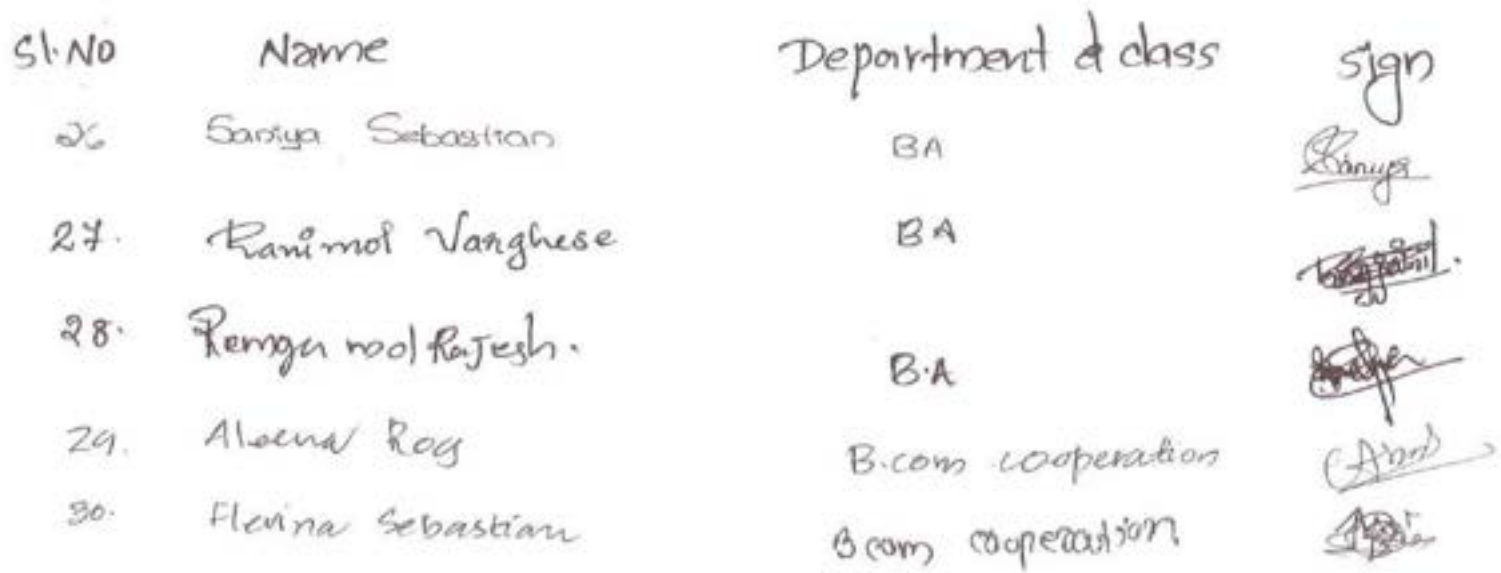 Sl.No Name Department & class sign
26 Saniya Sebastian BA
27. Ranimol Varghese BA
28. Remya mol Rajesh. B.A
29. Aleena Roy B.com cooperation
30. Flevina Sebastian B com cooperation